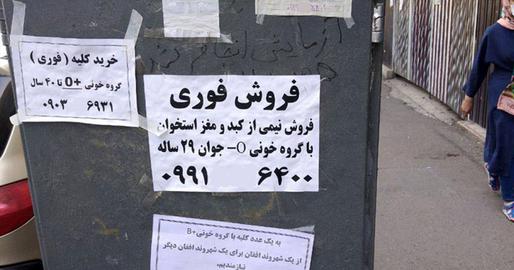 خرید کلیه ( فوری )
گروه خونی +O تا ۴۰ سال
۰۹۰۳ ۶۹۳۱
فروش فوری
فروش نیمی از کبد و مغز استخوان
با گروه خونی O- جوان ۲۹ ساله
۰۹۹۱ ۶۴۰۰
به یک عدد کلیه با گروه خونی B+
از یک شهروند افغان برای یک شهروند افغان دیگر
نیازمندیم.